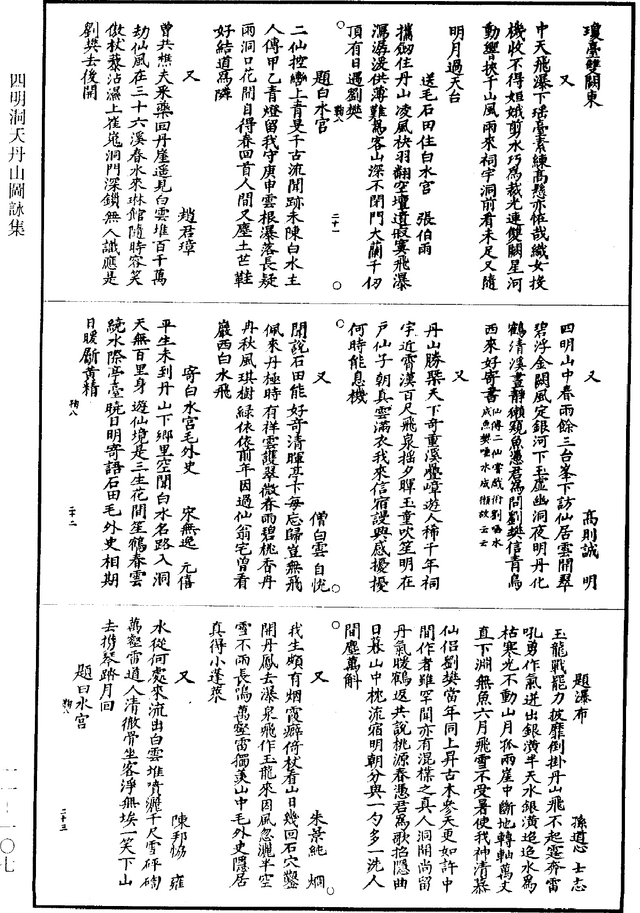 瓊臺雙闕東
又
中天飛瀑下瑤臺素練高懸亦怪哉織女投
機收不得姮娥剪水巧爲裁光連雙闕星河
動響挾千山風雨來祠宇洞前看未足又隨
明月過天台
送毛石田住白水宮　張伯雨
攜劒住丹山凌風袂羽翻空壇遺瑕寞飛瀑
瀉潺湲供薄難爲客山深不閉門大蘭千仞
頂有日遇劉樊
鞠八
二十一
題白水宮
二仙控鸞上青旻千古流聞跡未陳白水主
人傳甲乙青燈留我守庚申雲根瀑落長疑
雨洞口花開自得春回首人間又塵土芒鞋
好結道爲隣
又　趙君璋
曾共樵夫采藥回丹崖遙見白雲堆百千萬
劫仙風在三十六溪春水來琳館隨時容笑
傲杖藜沾濕上崔嵬洞門深鎖無人識應是
劉樊去後開
又　高則誠　明
四明山中春雨餘三台峯下訪仙居雲開翠
碧浮金闕風定銀河下玉虛幽洞夜明丹化
鶴清溪晝靜獺窺魚憑君爲問劉樊信青鳥
西來好寄書
仙傳二仙嘗戲術劉唾水
成魚樊唾水成獺故云云
又
丹山勝槩天下奇重溪疊嶂遊人稀千年祠
宇近霄漢百尺飛泉搖夕暉玉童吹笙明在
戶仙子朝真雲滿衣我來信宿謾興感擾擾
何時能息機
又　僧白雲　自悅
聞說石田能好奇清暉亭下每忘歸豈無飛
佩來丹極時有祥雲護翠微春雨碧桃香丹
冉秋風琪樹綠依依前年因過仙翁宅曾看
巖西白水飛
寄白水宮毛外史　宋無逸　元僖
平生未到丹山下鄉里空聞白水名路入洞
天無百里身遊仙境是三生花間笙鶴春雲
繞水際亭臺曉日明寄語石田毛外史相期
日暖斸黃精
鞠八
二十二
題瀑布　孫道心　士志
玉龍戰罷力披靡倒掛丹山飛不起霆奔雷
吼勇作氣迸出銀潢半天水銀潢迢迢水爲
枯寒光不動山月孤兩崖中斷地轉軸萬丈
直下淵無魚六月飛雪不受暑使我神清慕
仙侶劉樊當年同上昇古木參天更如許中
間作者雖罕聞亦有混樸之真人洞開尚留
丹氣暖鶴返共說桃源春憑君爲歌招隱曲
日暮山中枕流宿明朝分與一勺多一洗人
間塵萬斛
又　朱景純　烱
我生頗有烟霞癖倚杖看山日幾回石穴鑿
開丹鳳去瀑泉飛作玉龍來因風忽灑半空
雪不雨長鳴萬壑雷獨羨山中毛外史隱居
真得小蓬萊
又　陳邦協　雍
水從何處來流出白雲堆噴灑千尺雪砰磕
萬壑雷道人清徹骨坐客淨無埃一笑下山
去携琴踏月回
題白水宮
鞠八
二十三
四明洞天丹山圖詠集
一一–一〇七